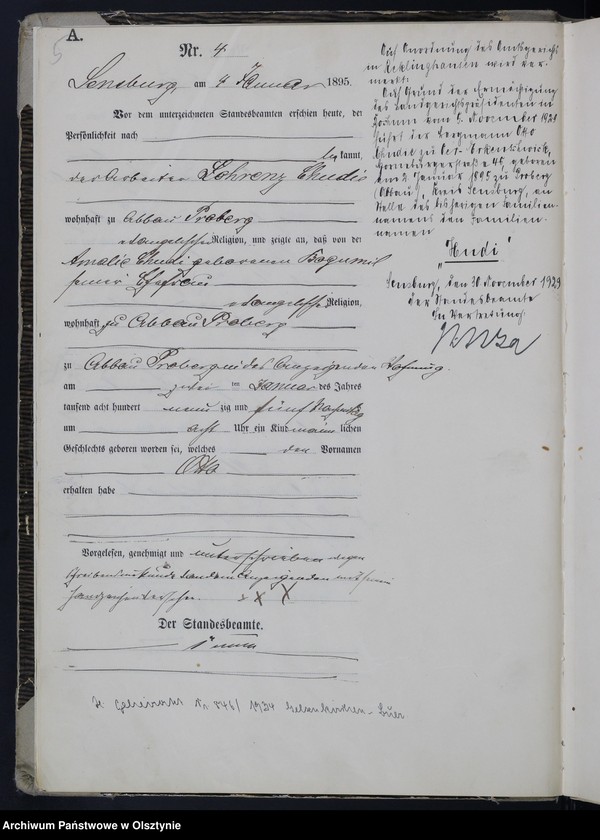 A.
5
Nr. 4
Sensburg, am 4 Januar 1895.
Vor dem unterzeichneten Standesbeamten erschien heute, der
Persönlichkeit nach
kannt,
der Arbeiter
wohnhaft zu Abbau Proberg
evangelischer Religion, und zeigte an, daß von der
Amalie geborenen Bogumil
seiner Ehefrau
evangelischer Religion,
wohnhaft zu Abbau Proberg
zu Abbau Proberg in des Anzeigenden Wohnung.
am zwei ten Januar des Jahres
tausend acht hundert neun zig und fünf Nachmittag
um acht Uhr ein Kind männlichen
Geschlechts geboren worden sei, welches den Vornamen
Otto
erhalten habe
Vorgelesen, genehmigt und unterschrieben wegen
Schreibensunkunde von dem Anzeigenden mit seinem
Handzeichen versehen. XXX
Der Standesbeamte.
Auf Anordnung des Amtsgerichts
in Recklinghausen wird ver-
merkt:
Auf Grund der Ermächtigung
des Landgerichtspräsidenten in
Bochum vom 5. November 1929
führt der Bergmann Otto
zu Oer-Erkenschwick,
46, geboren
am 2. Januar 1895 zu Proberg
(Abbau), Kreis Sensburg, an
Stelle des bisherigen Familien-
namens den Familien-
namen
"Hudi"
Sensburg, den 30 November 1929
Der Standesbeamte
In Vertretung
H. Geheiratet Nr 846/1934 Gelsenkirchen-Buer
Archiwum Państwowe w Olsztynie